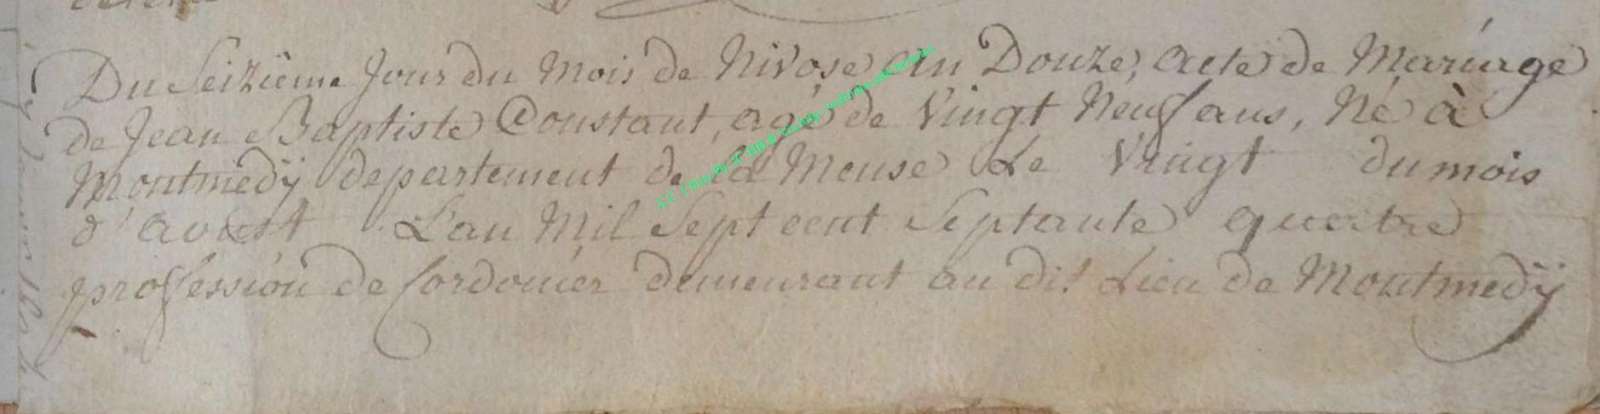 Du Seizième Jour du Mois de Nivose an Douze, acte de Mariage
de Jean Baptiste Constant, agé de Vingt Neuf ans, Né à
Montmedÿ departement de la Meuse Le Vingt du mois
d'avoust L'an Mil Sept cent Septante quatre
profession de Cordonier demeurant au dit Lieu de Montmedÿ